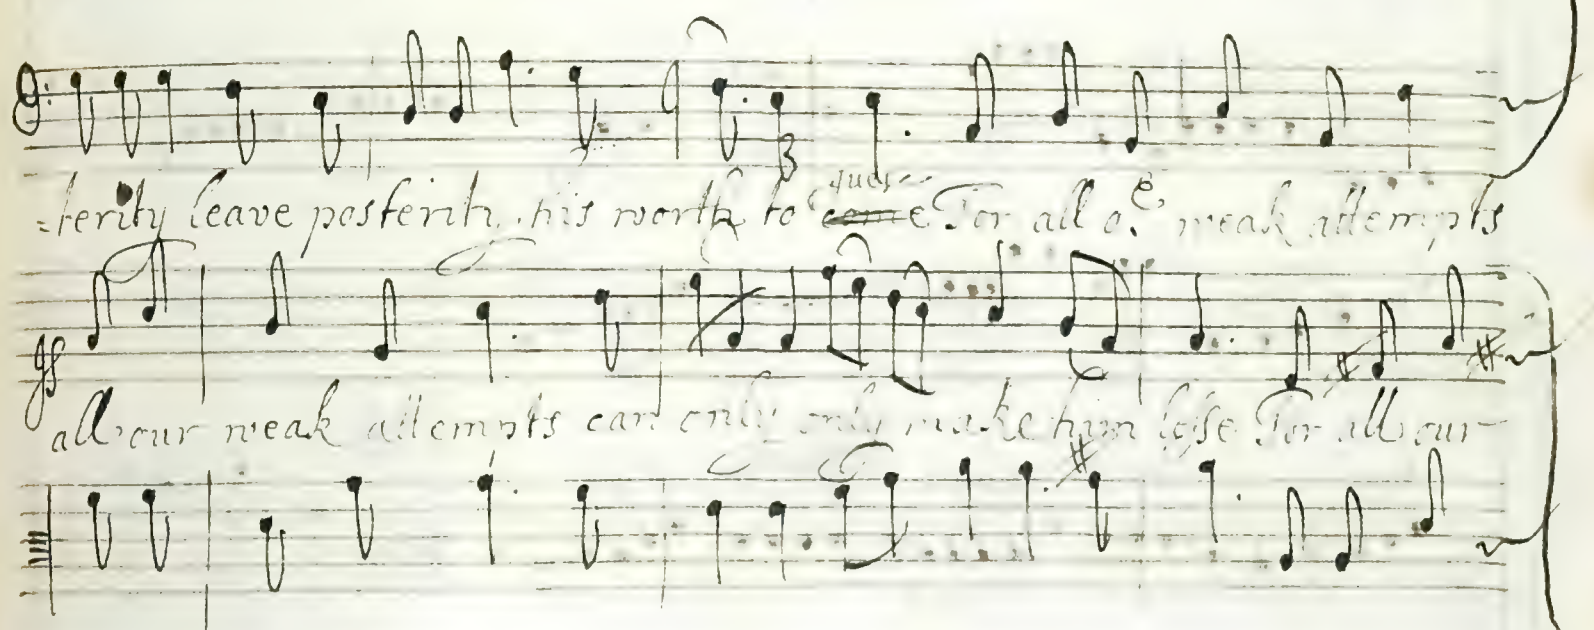 =terity leave posterity, his worth to come ques For all or weak attempts
all our weak attempts can only only make him lesse For all our